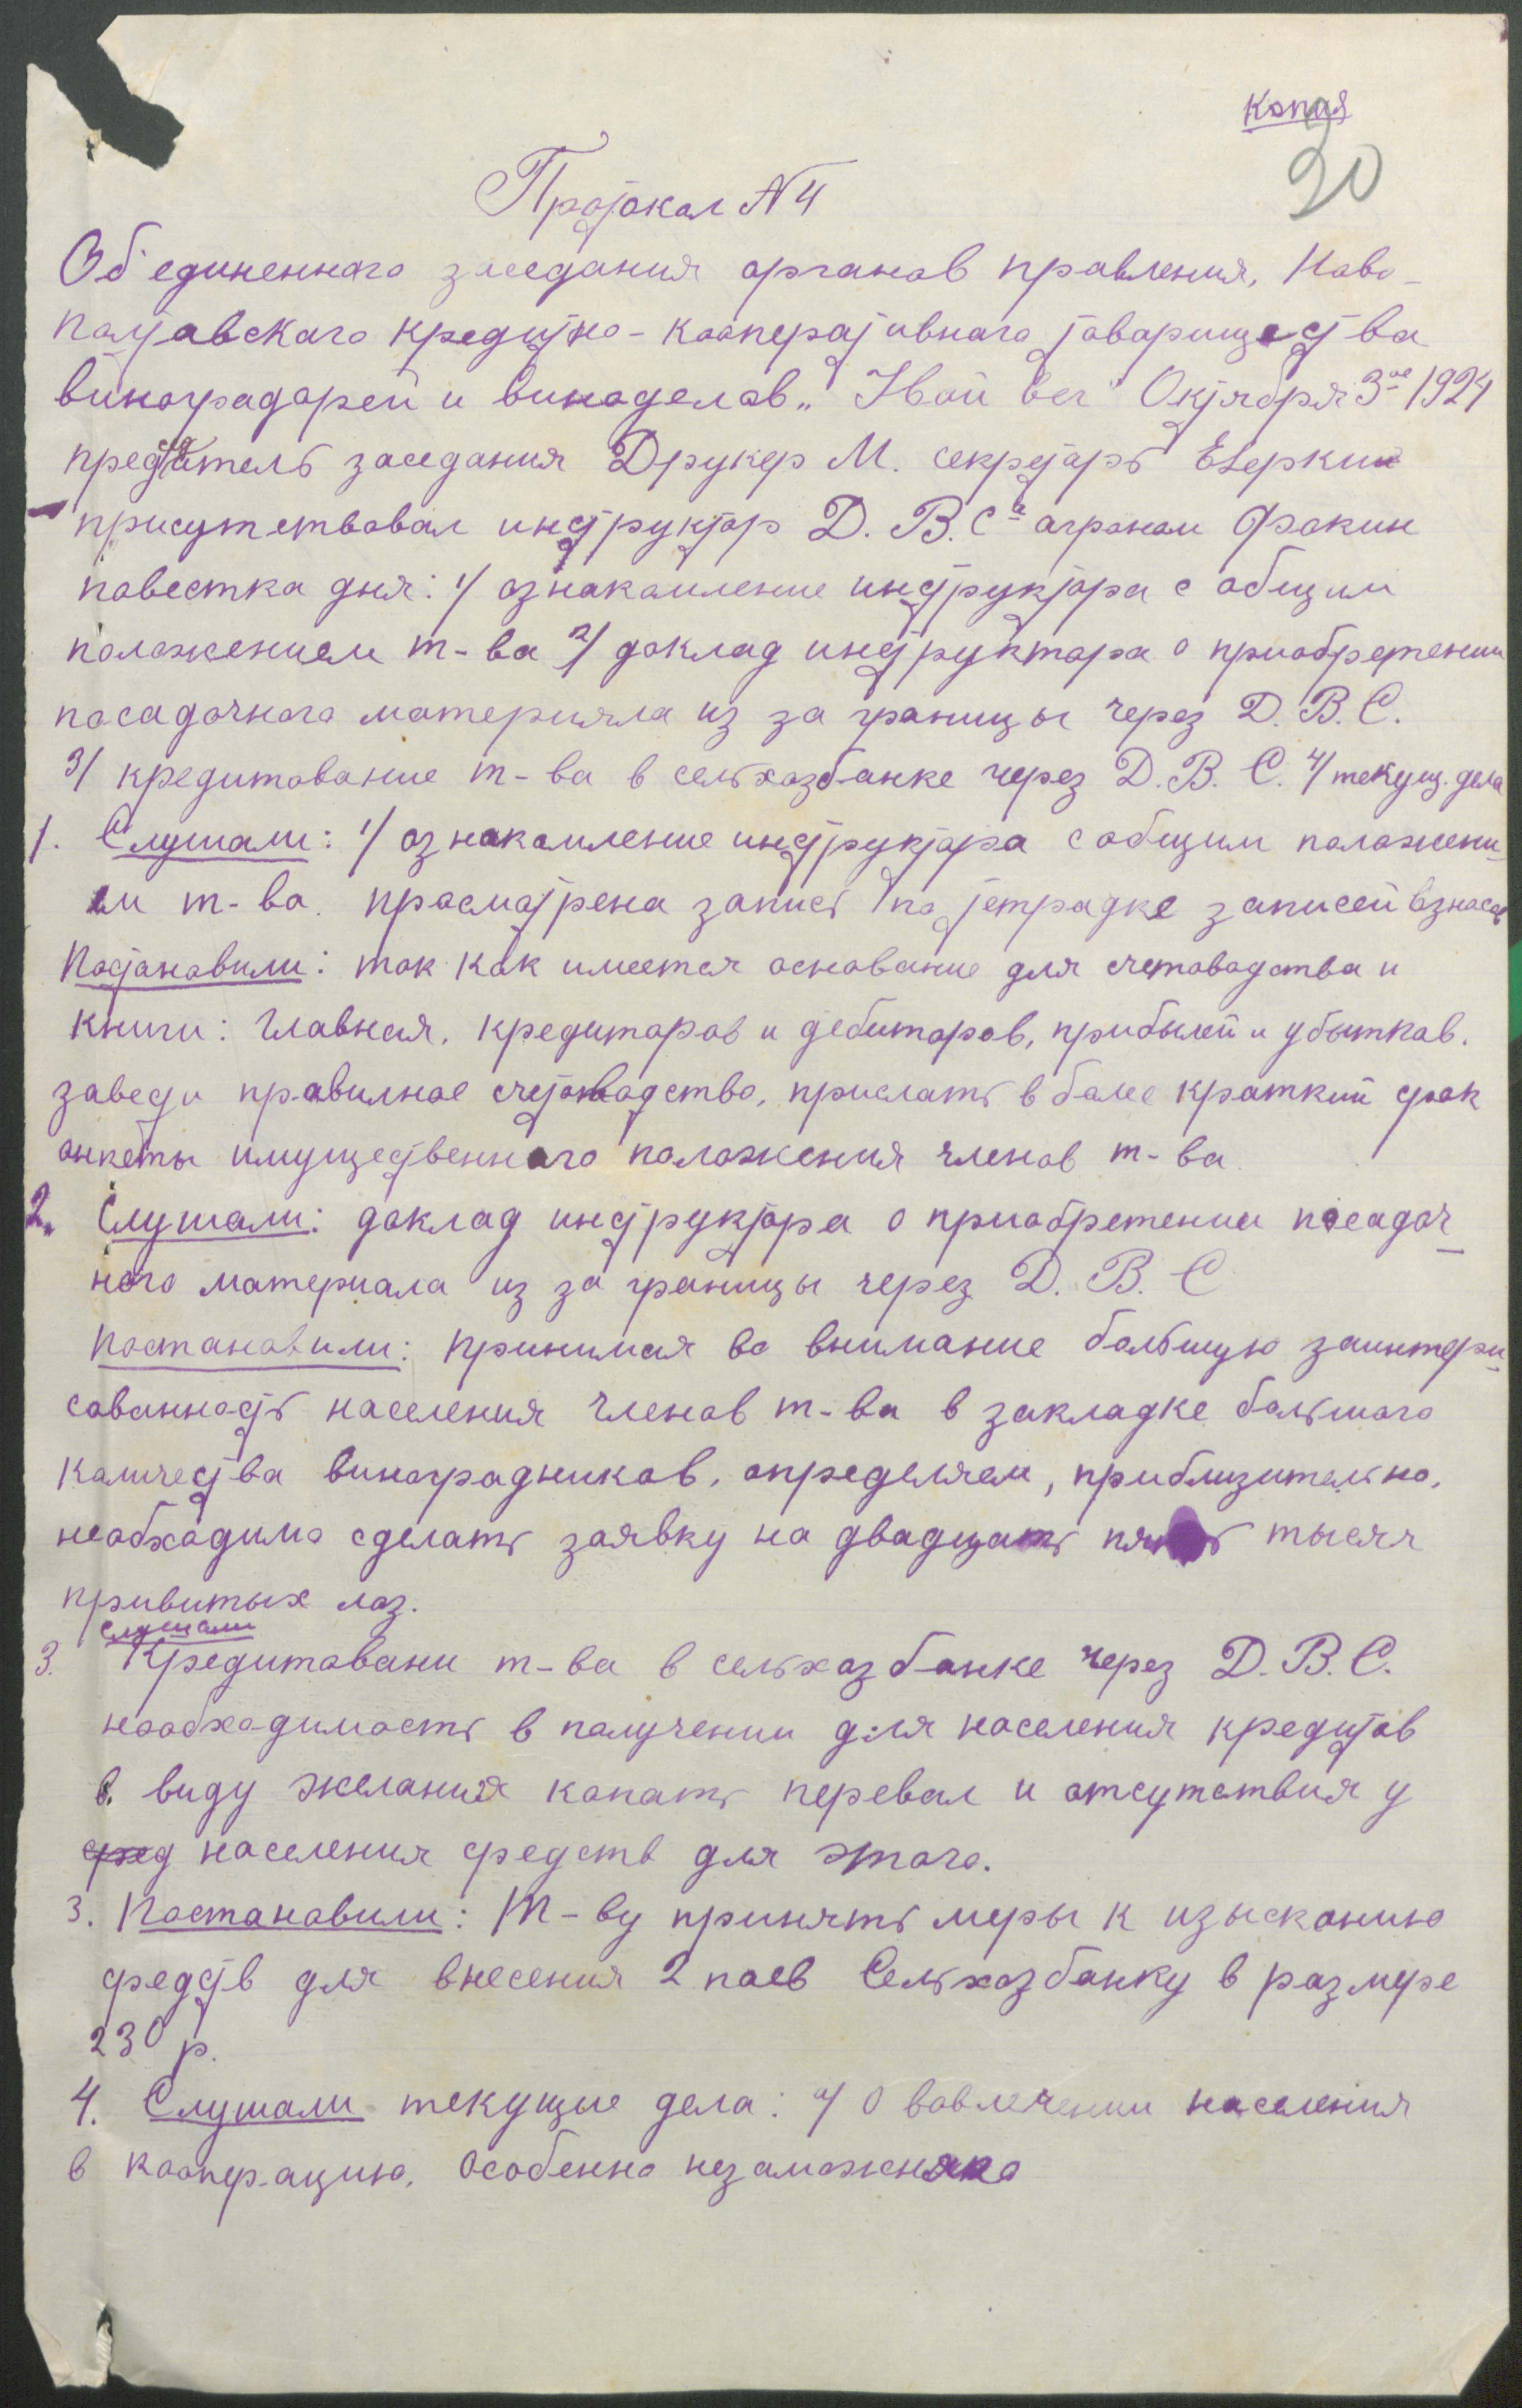 Копия
30
Протокол N 4
Об'единеннаго заседания органов правления, Ново-
полтавскаго кредитно-кооперативнаго товарищества
виноградарей и виноделов „Ивой вег" Октября 3го 1924
председатель заседания Друкер М. секретарь Еверкин
присутствовал инструктор Д. В. Са агроном Фокин
повестка дня: 1/ ознакомление инструктора с общим
положением т-ва 2/ доклад инструктора о приобретении
посадочного материяла из за границы через Д. В. С.
3/ кредитование т-ва в сельхозбанке через Д. В. С. 4/ текущ. дела
1. Слушали: 1/ ознакомление инструктора с общим положени-
ем т-ва. просмотрена запись по тетрадке записей взносов
Постановили: так как имеется основание для счетоводства и
книги: Главная, кредиторов и дебиторов, прибылей и убытков.
завести правилное счетоводство, прислать в более краткий срок
анкеты имущественнаго положения членов т-ва
2. Слушали: доклад инструктора о приобретении посадоч-
ного материала из за границы через Д. В. С
Постановили: принимая во внимание большую заинтери-
сованность населения членов т-ва в закладке большого
количества виноградников, определяем, приблизительно,
необходимо сделать заявку на двадцать пять тысяч
привитых лоз.
Слушали
3. Кредитовани т-ва в сельхозбанке через Д. В. С.
необходимость в получении для населения кредитов
в виду желания копать перевал и отсутствия у
сред населения средств для этого.
3. Постановили: Т-ву принять меры к изысканию
средств для внесения 2 паев Сельхозбанку в размере
230 р.
4. Слушали текущие дела: а/ О вовлечении населения
в кооперацию, особенно незаможняко